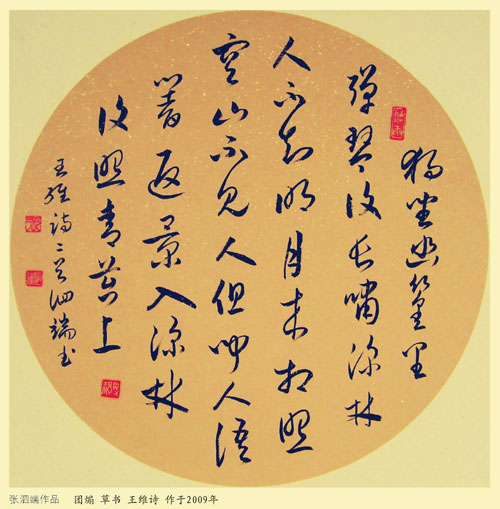 独坐幽篁里
弹琴復长嘯深林
人不知明月来相照
空山不见人但闻人语
響返景入深林
復照青苔上
王维诗二首泗端书
张泗端作品 团煽 草书 王维诗 作于2009年